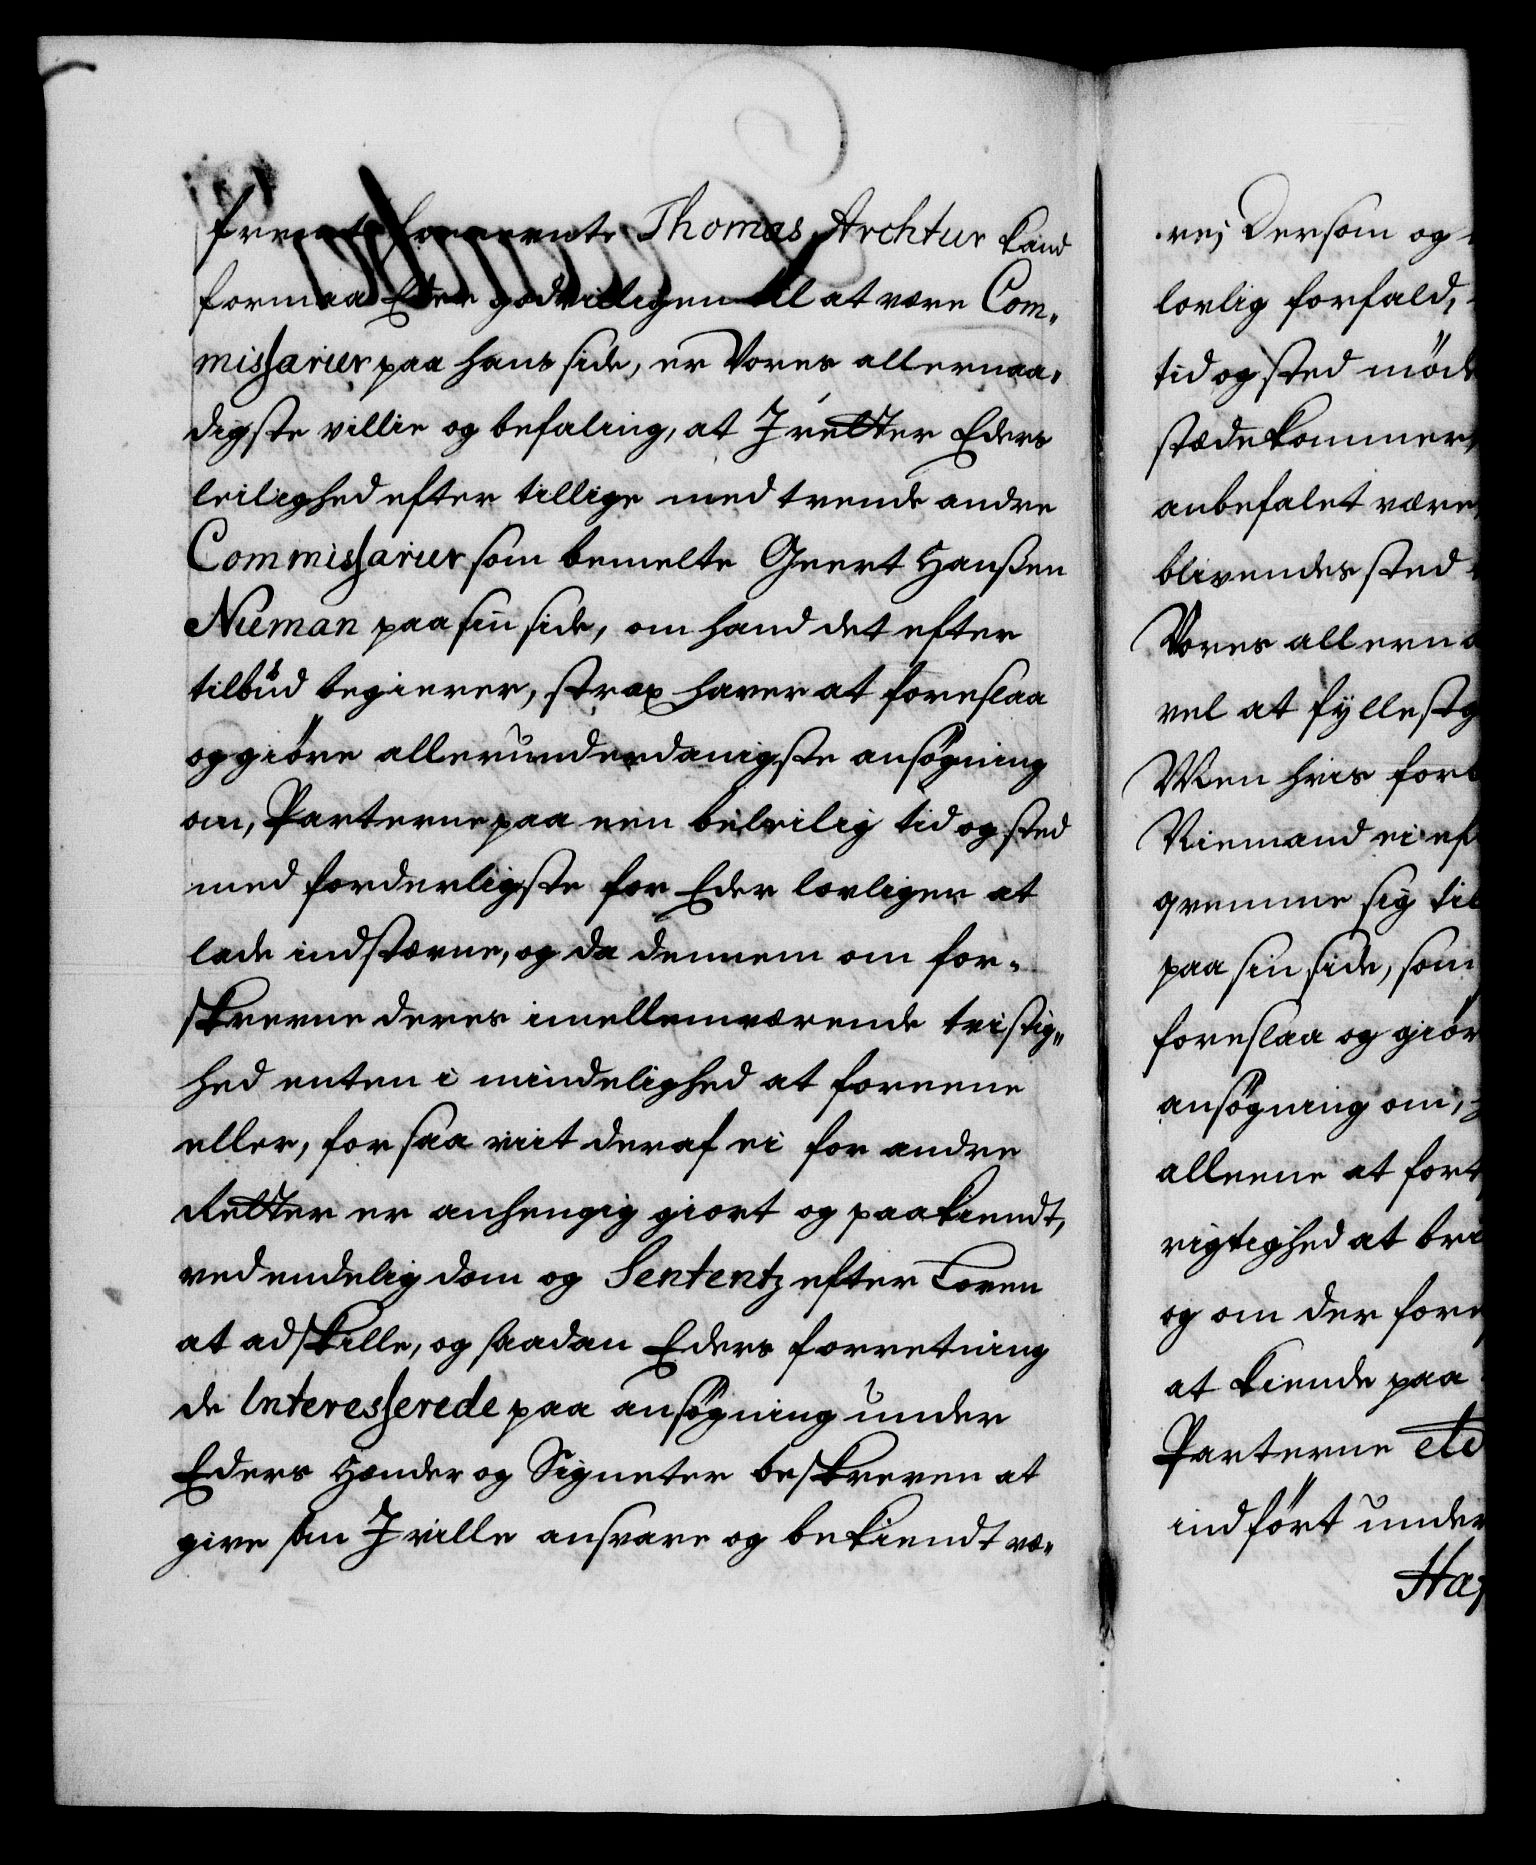 fremt forrente Thomas Archtur kand
formaa Eder godvilligen til at være Com„
missarier paa hans side, er Vores allernaa„
digste villie og befaling, at I retter Eders
leilighed efter tillige med trende andre
Commissarier som bemelte Geert Hanßen
Nieman paa sin side, om hand det efter
tilbud begierer, strax haver at foreslaa
og giöre allerunderdanigste ansögning
om, Parterne paa een beleilig tid og sted
med forderligste for Eder lovligen at
lade indstevne, og da dennem om for„
skrevne deres imellemværende tvistig„
hed enten i mindelighed at foreene
eller, for saa viit deraf ei for andre
Retter er anhengig giort og paakiendt,
ved endelig dom og Sententz efter Loven
at adskille, og saadan Eders forretning
de Interesserede paa ansögning under
Eders Hænder og Signeter beskreven at
give som I ville ansvare og bekiendt væ„
re; Dersom og
lovlig forfald,
tid og sted möde
stædekommer,
anbefalet være,
blivendes sted
Vores allerna
vel at fyllestg
Men hvis for
Niemand ei ef
qvemme sig til
paa sin side, som
foreslaa og giör
ansögning om,
alleene at fort
rigtighed at bri
og om der fore
at kiende paa
Parterne etc
indfört under
Haf